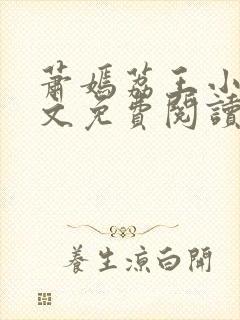 蕭媽荔王小
文免費閱讀
養生涼白開